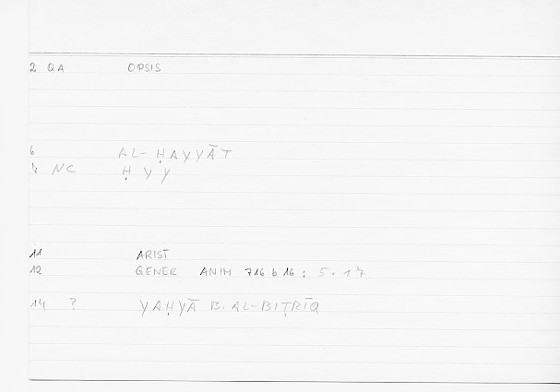 2 QA OPSIS
6 AL- ḤAYYĀT
NC ḤYY
11 ARIST
12 GENER ANIM 716 b 16 : 5. 17
14 ? YAḤYĀ B. AL-BIṬRĪQ